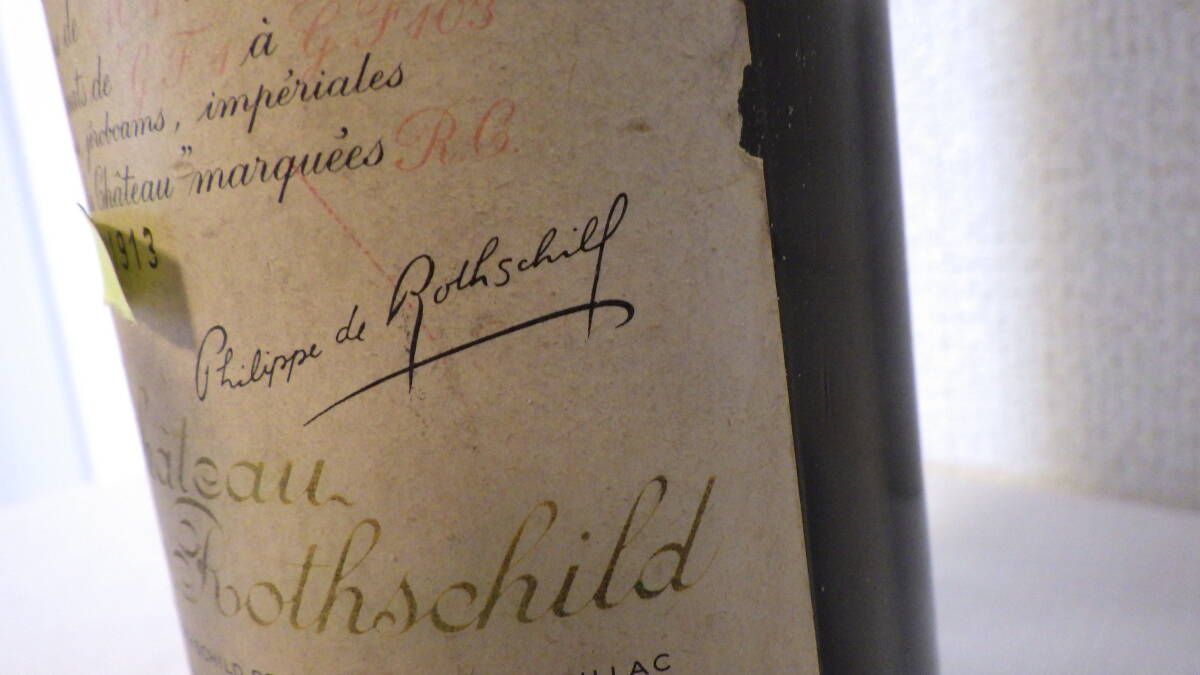 de
de GF1 à GF103
jéroboams, impériales
Château" marquées R.C.
1913
Philippe de Rothschild
Château
Rothschild